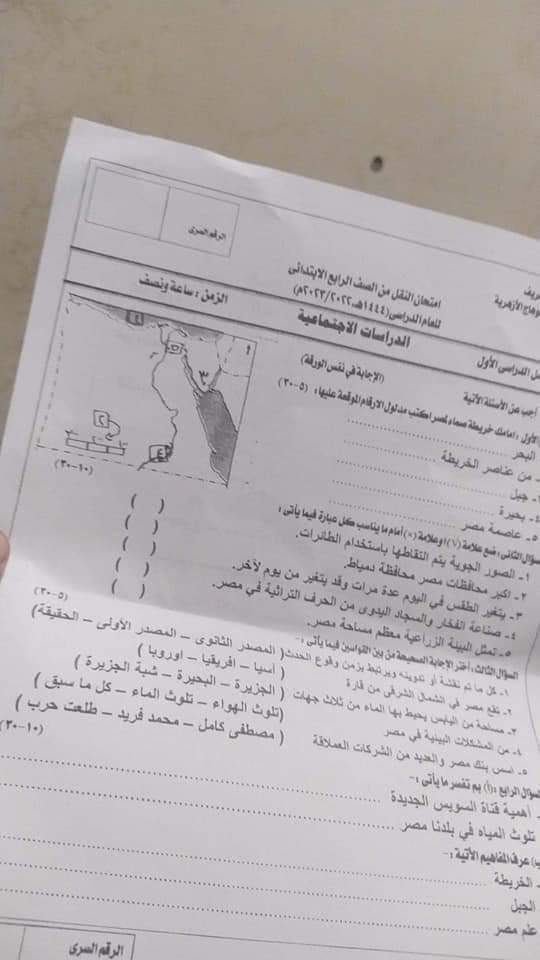 الرقم السرى
ريف
وهاج الأزهرية
امتحان النقل من الصف الرابع الابتدائى
للعام الدراسى (١٤٤٤هـ ٢٠٢٢/٢٠٢٣م)
الزمن : ساعة ونصف
الدراسات الاجتماعية
ل الدراسى الأول
(الإجابة في نفس الورقة)
أجب عن الأسئلة الآتية
الأول : امامك خريطة صماء لمصر اكتب مدلول الارقام الموقعة عليها : (٥-٣٠)
البحر
من عناصر الخريطة
جبل
٤- بحيرة
٥- عاصمة مصر
١
١
٢
٣
٤
(١٠-٣٠)
سؤال الثانى : ضع علامة (√) او علامة (×) أمام ما يناسب كل عبارة فيما يأتى :
١- الصور الجوية يتم التقاطها باستخدام الطائرات. ( )
٢- اكبر محافظات مصر محافظة دمياط. ( )
٣- يتغير الطقس في اليوم عدة مرات وقد يتغير من يوم لآخر. ( )
٤- صناعة الفخار والسجاد اليدوى من الحرف التراثية في مصر. ( )
٥- تمثل البيئة الزراعية معظم مساحة مصر. ( )
(٥-٣٠)
السؤال الثالث : أختر الإجابة الصحيحة من بين القوسين فيما يأتى :-
١- كل ما تم نقشة أو تدوينه ويرتبط بزمن وقوع الحدث ( المصدر الثانوى – المصدر الأولى – الحقيقة)
٢- تقع مصر في الشمال الشرقي من قارة ( أسيا – افريقيا – اوروبا )
٣- مساحة من اليابس يحيط بها الماء من ثلاث جهات ( الجزيرة – البحيرة – شبة الجزيرة )
٤- من المشكلات البيئية في مصر (تلوث الهواء – تلوث الماء – كل ما سبق )
٥- اسس بنك مصر والعديد من الشركات العملاقة ( مصطفى كامل – محمد فريد – طلعت حرب )
(١٠-٣٠)
سؤال الرابع : (أ) بم تفسر ما يأتى :-
أهمية قناة السويس الجديدة
تلوث المياه في بلدنا مصر
ب) عرف المفاهيم الأتية :-
الخريطة
الجبل
علم مصر
الرقم السرى